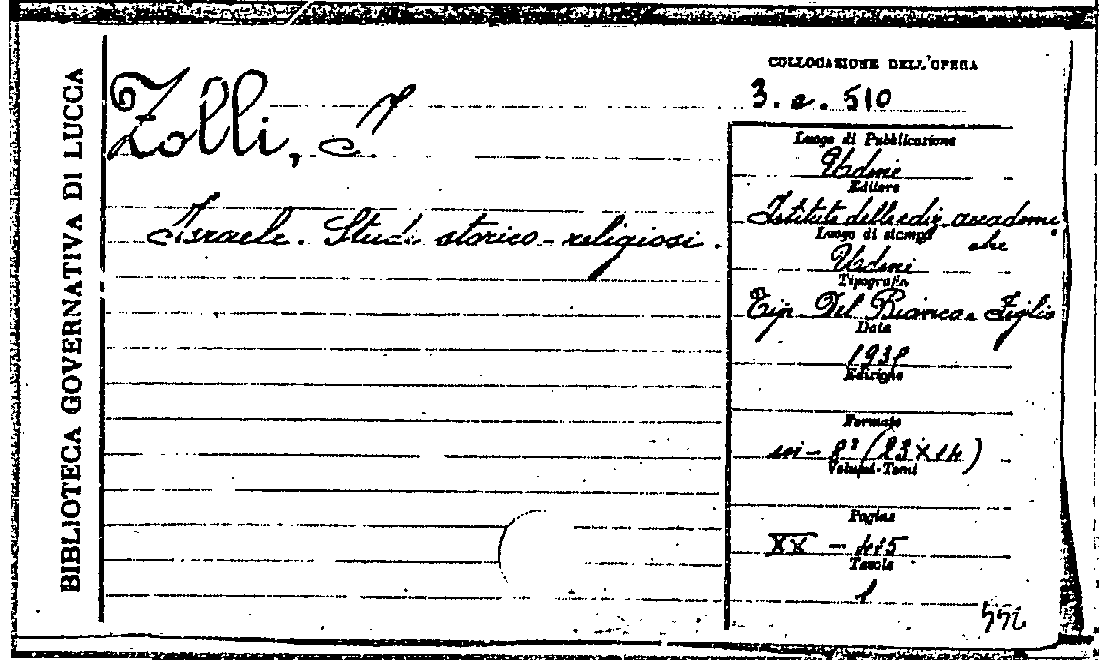 BIBLIOTECA GOVERNATIVA DI LUCCA
Zolli, I
Israele. Studi storico-religiosi.
COLLOCAZIONE DELL'OPERA
3. a. 510
Luogo di Pubblicazione
Udine
Editore
Istituto delle ediz. accademi
che
Luogo di stampa
Udine
Tipografia
Tip. Del Bianco e Figlio
Data
Edizione
Formato
in-8° (23×14)
Volumi-Tomi
Pagine
XX -
Tavole
1